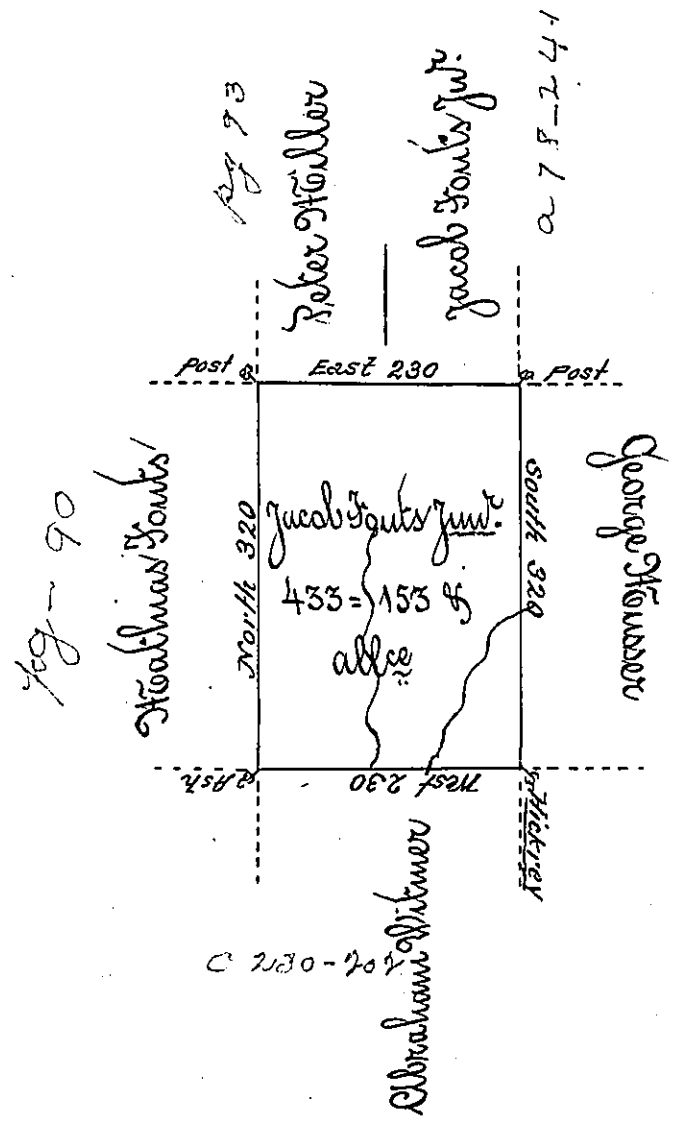 pg 93
Peter Miller
Jacob Fouts Jur.
a 78-241
Post
East 230
Post
pg - 90
Mathias Fouts
North 320
Jacob Fouts Junr.
433 = 153 &
allce
South 320
George Musser
Ash
West 230
Hickrey
Abraham Witmer
C 230-202